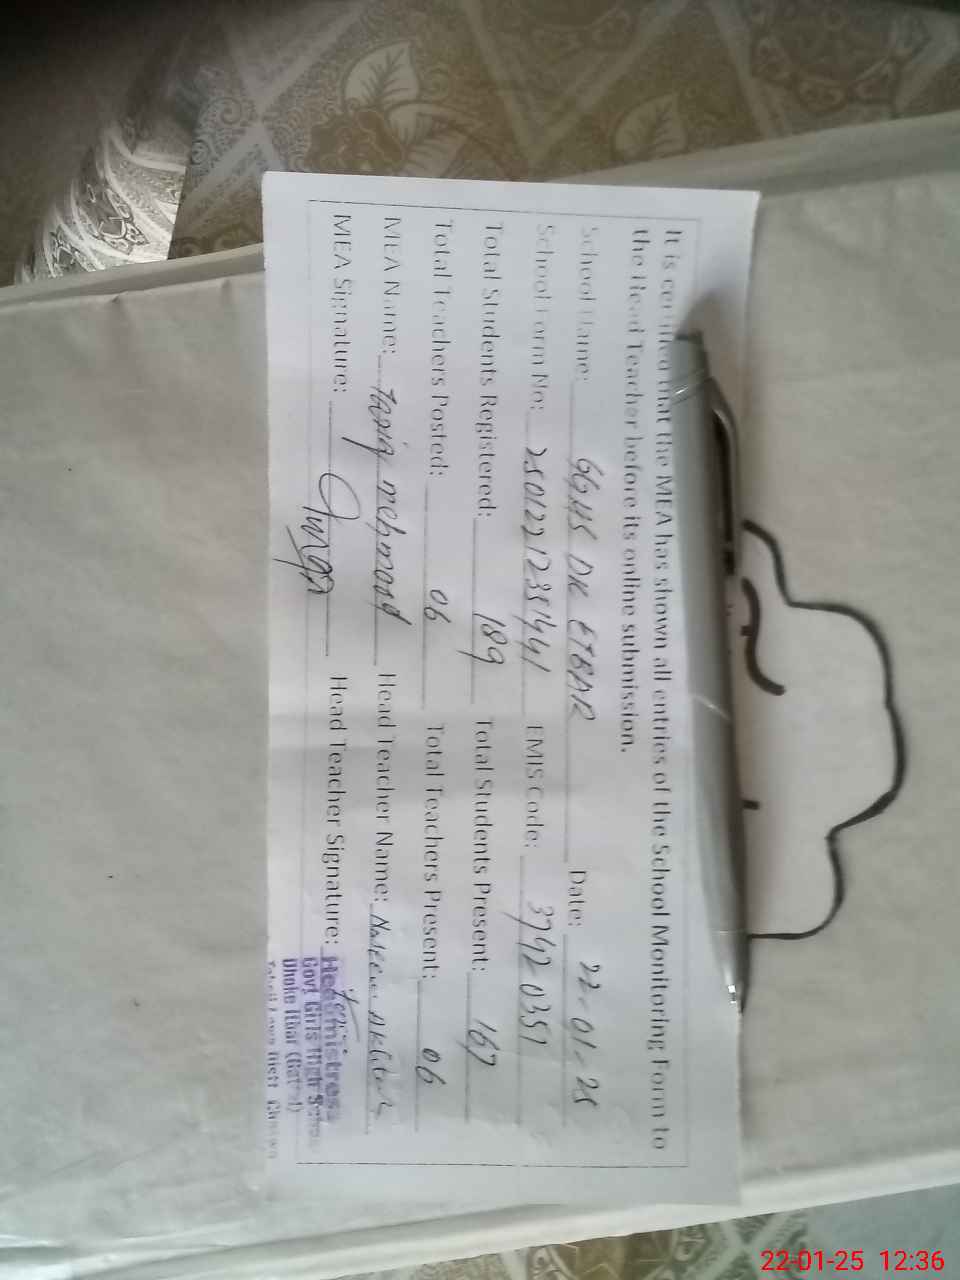 It is certified that the MEA has shown all entries of the School Monitoring Form to
the Head Teacher before its online submission.
School Name: GGHS DK ETBAR Date: 22-01-25
School Form No: EMIS Code: 37420351
Total Students Registered: 189 Total Students Present: 167
Total Teachers Posted: 06 Total Teachers Present: 06
MEA Name: Tariq mehmood Head Teacher Name: Nasreen Akhtar
MEA Signature: Head Teacher Signature:
Headmistress
Govt Girls High School
Dhoke
22-01-25 12:36